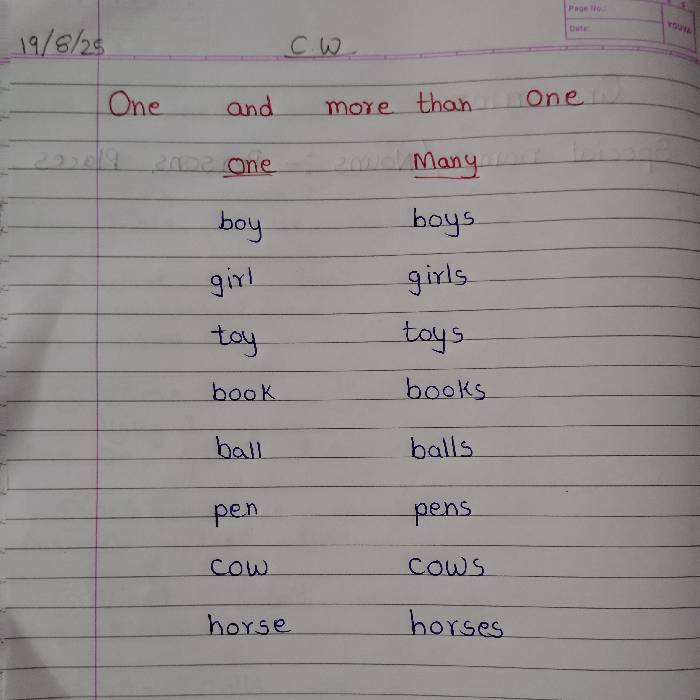 Page No.:
Date:
YOUVA
19/8/25 C.W.
One and more than one
One Many
boy boys
girl girls
toy toys
book books
ball balls
pen pens
cow cows
horse horses